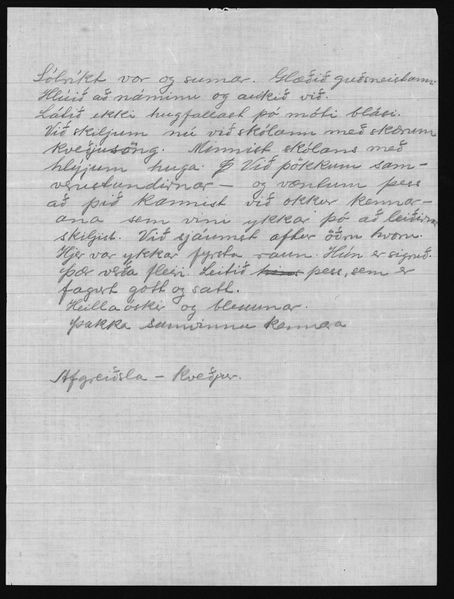 Sólríkt vor og sumar. Glæðið guðsneistann.
Hlúið að náminu og aukið við.
Látið ekki hugfallast þó móti blási.
Við skiljum nú við skólann með skærum
kveðjusöng. Mennist skólans með
hlýjum huga. Við þökkum sam-
verustundirnar — og væntum þess
að þið kannist við okkur kennar-
ana sem vini ykkar þó að leiðirn
skiljist. Við sjáumst aftur öðru hvoru.
Hjer var ykkar fyrsta raun. Hún er sigruð.
Þær verða fleiri. Leitið þess, sem er
fagurt gott og satt.
Heillaóskir og blessunar.
Þakka samvinnu kennara
Afgreiðsla — Kveðjur.